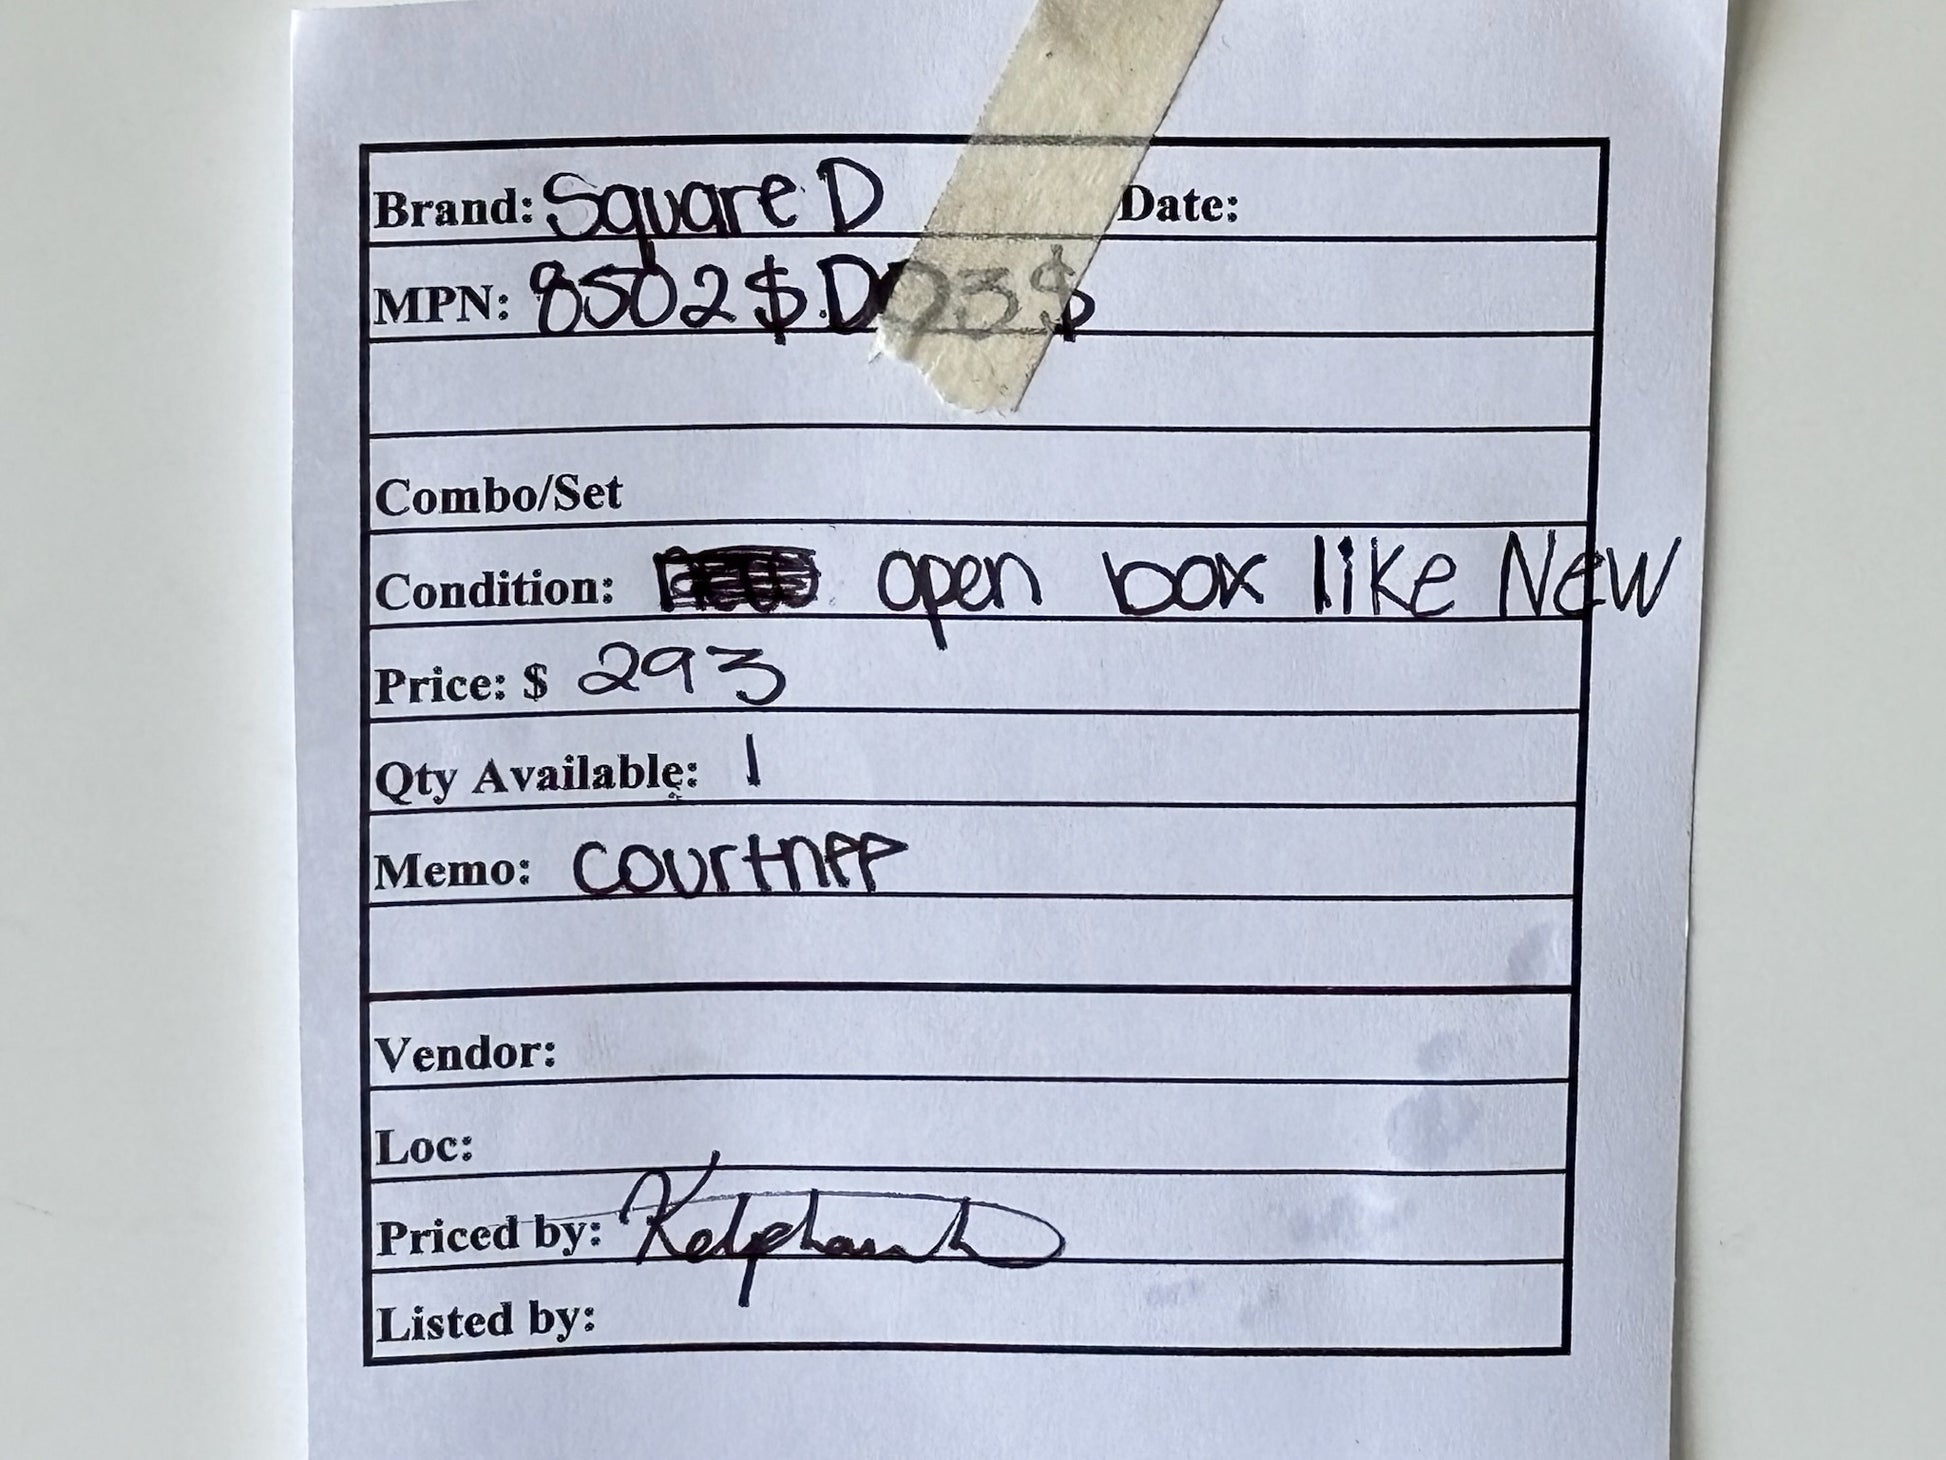 Brand: Square D Date:
MPN: 8502$DO3$
Combo/Set
Condition: open box like New
Price: $ 293
Qty Available: 1
Memo: Courtnee
Vendor:
Loc:
Priced by:
Listed by: